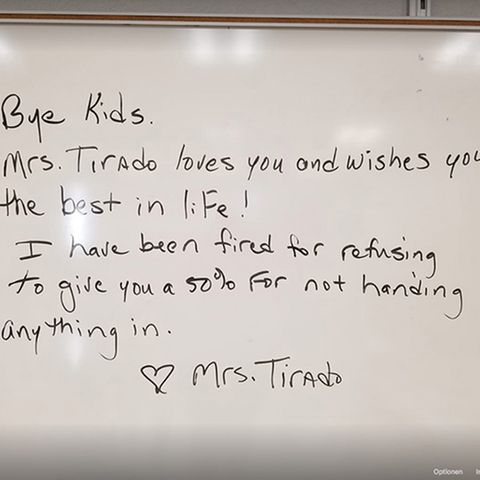 Bye Kids.
Mrs. Tirado loves you and wishes you
the best in life!
I have been fired for refusing
to give you a 50% for not handing
anything in.
♡ Mrs. Tirado
Optionen